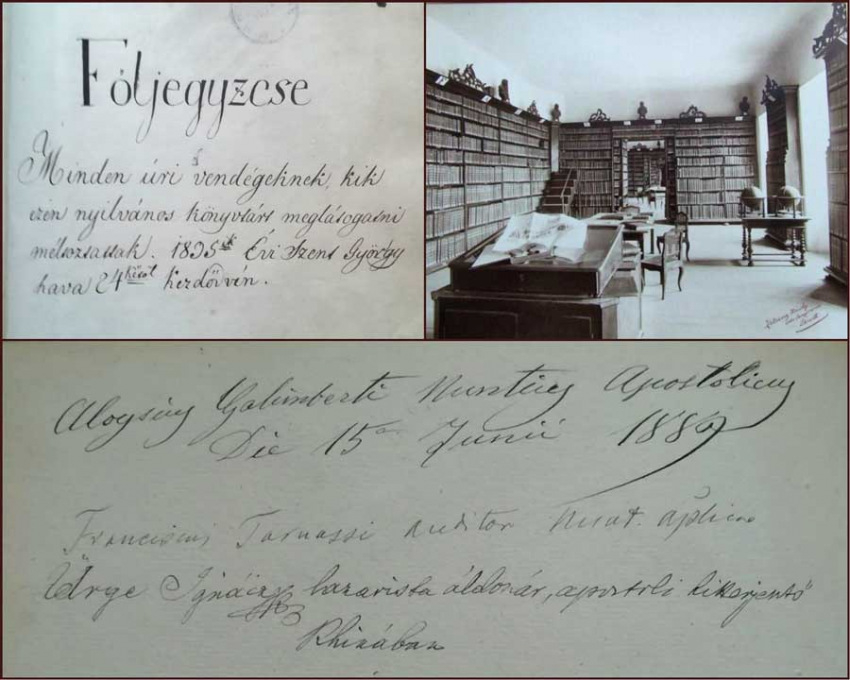 Följegyzése
Minden úri vendégeknek, kik
ezen nyilvános könyvtárt meglátogatni
méltóztattak. 1835 Évi Szent György
hava 24 kezdődvén.
Aloysius Galimberti Nuntius Apostolicus
Die 15 Junii 1889
Franciscus Tarnassi Auditor Nunt. Aplicae
Ürge Ignácz lazarista áldozár, apostoli hitterjentő
Khinában